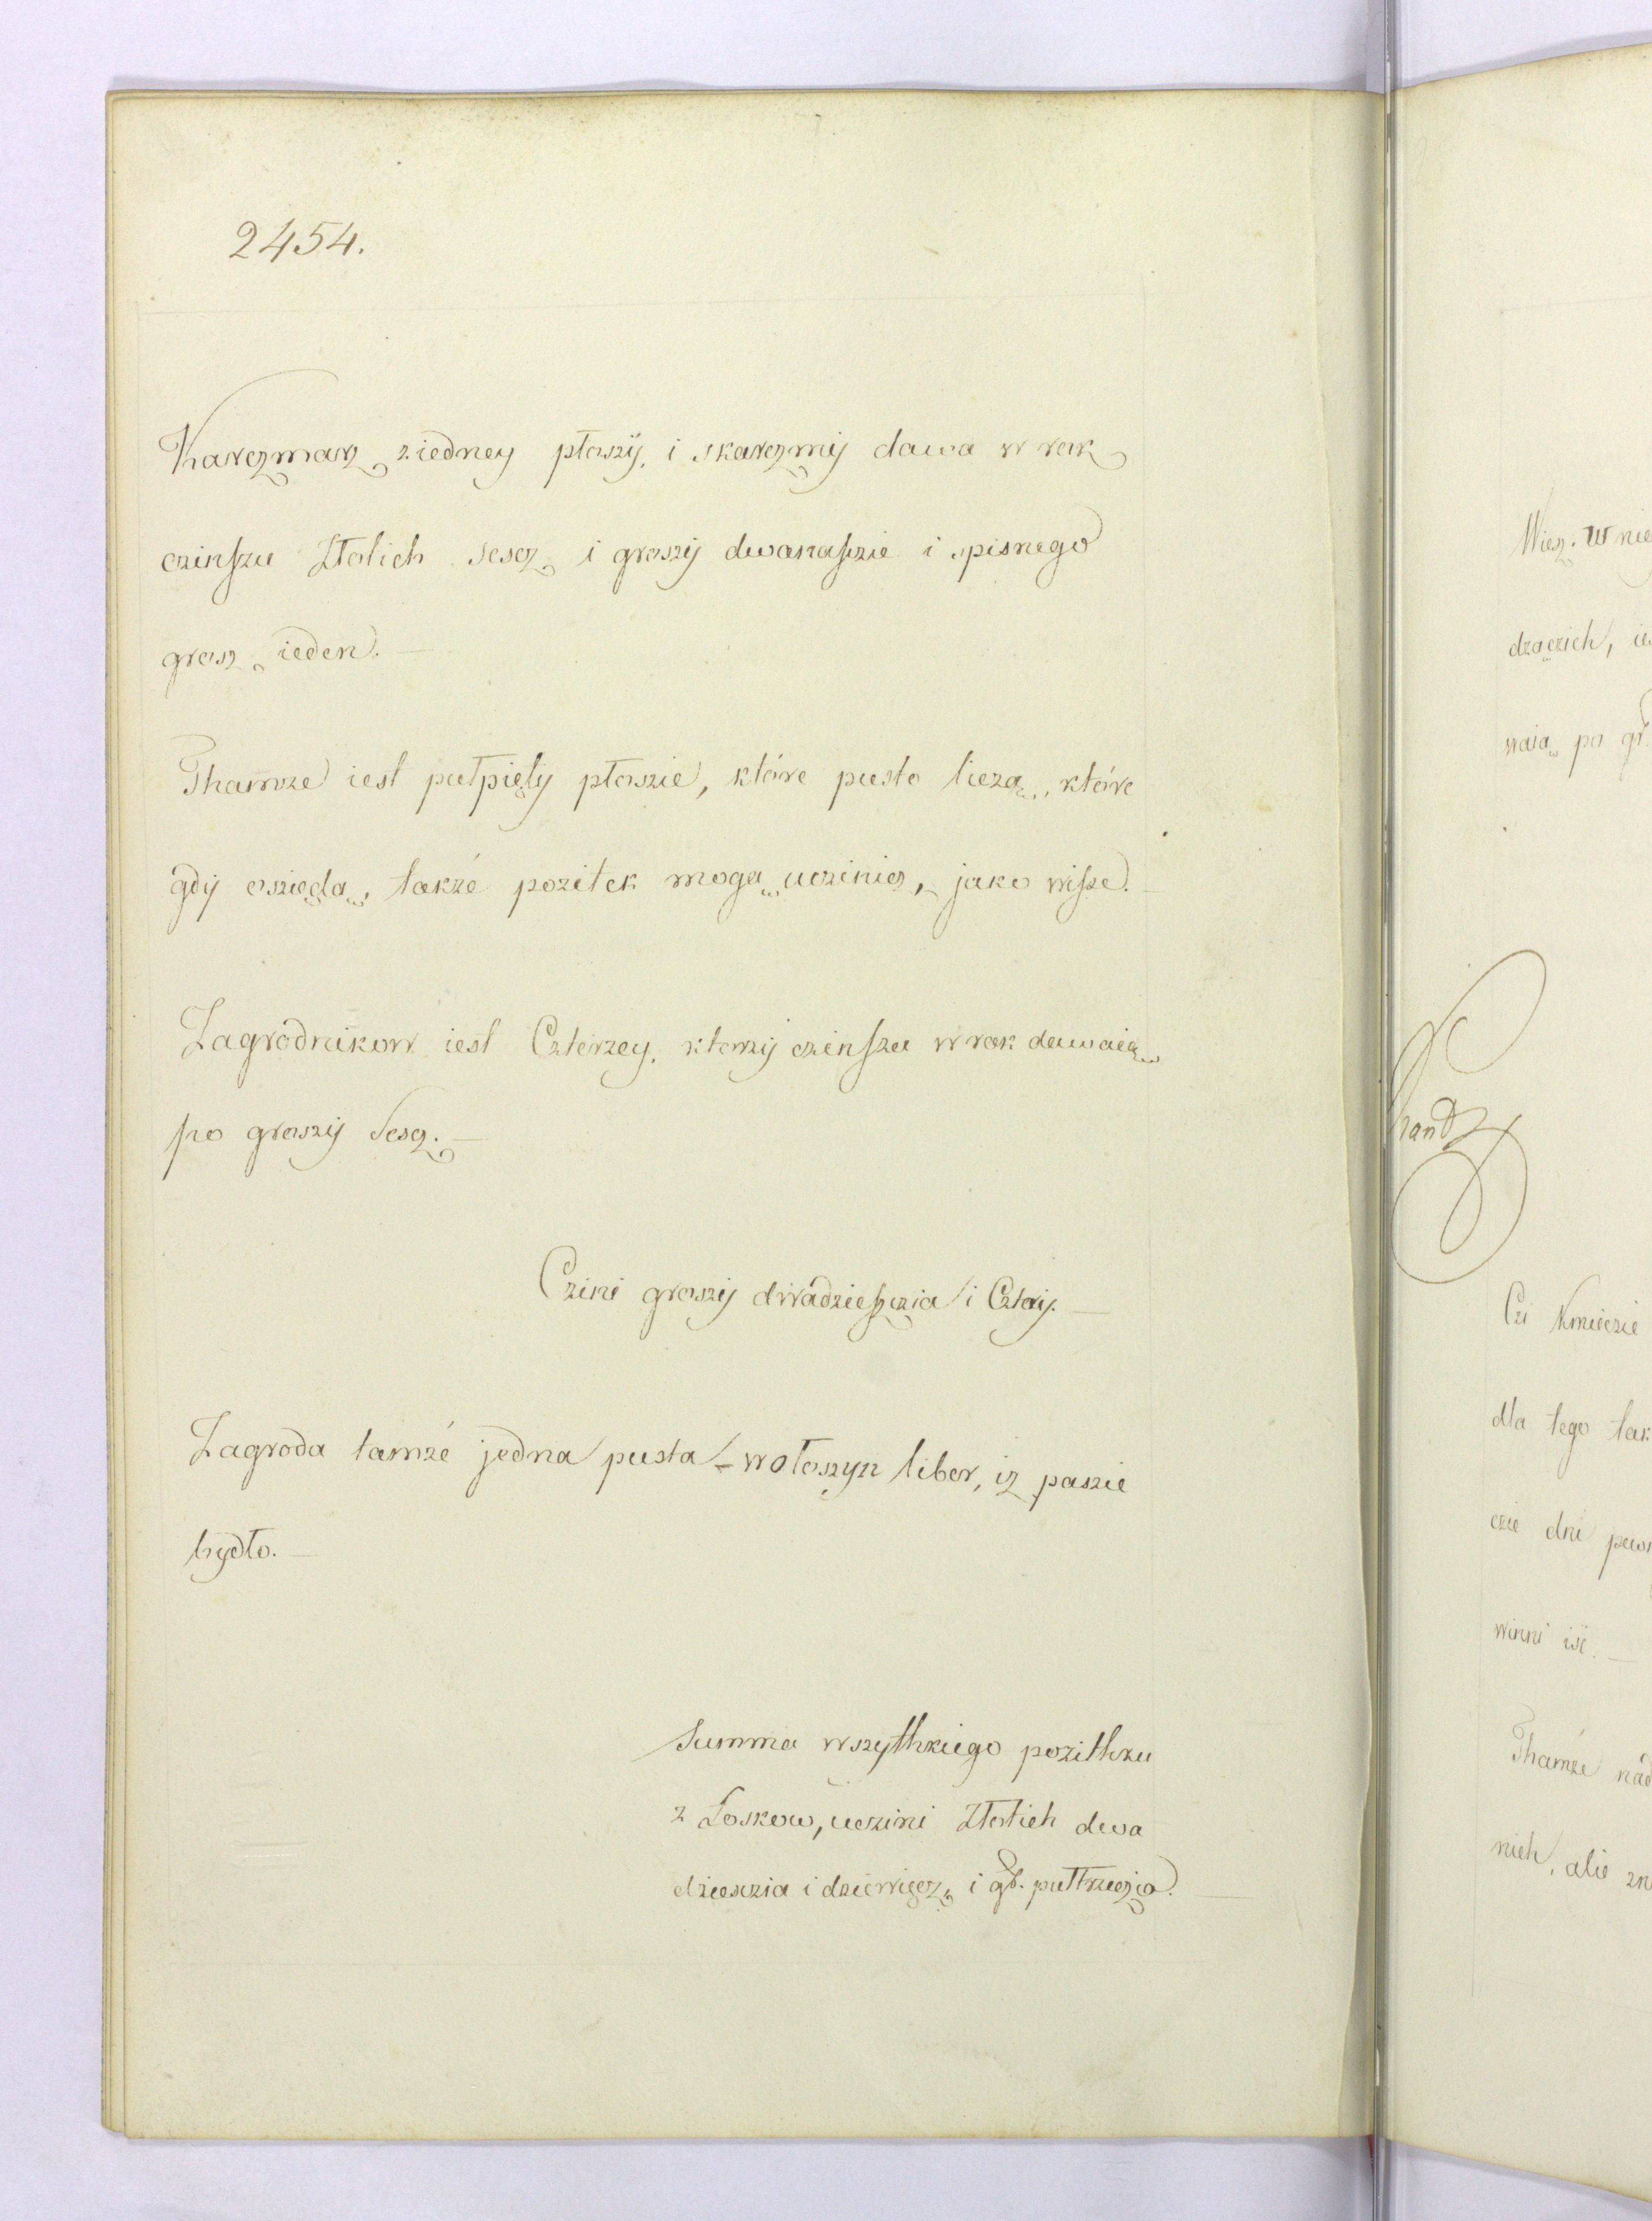 2454.
Karczmarz ziedney płoszÿ, i skarczmÿ dawa w rok
czinſzu Złotich Sescz i groszÿ dwanaſzcie i spisnego
grosz ieden. —
Thamże iest pułpięty płoszie, które pusto lieżą, które
gdÿ osziędą, także pozitek mogą uczinicz, jako wiſze. —
Zagrodnikow iest Czterzey, ktorzÿ czinſzu w rok dawaią
po groszÿ Sescz. —
Czini groszÿ dwadzieſzczia i Cztÿ. —
Zagroda tamże jedna pusta – wołoszyn liber, iz paszie
bydło. —
Summa wszythkiego pozithku
z Łoskow, uczini Złotich dwa
dziesczia i dziewięcz, i gr. pułtrzeczia. —
Wiez. W nie
dzączich, ie
waią po gr
Czi Kmieczie
dla tego tak
czie dni pew
winni iść. —
Thamże nad
nich, alie zn